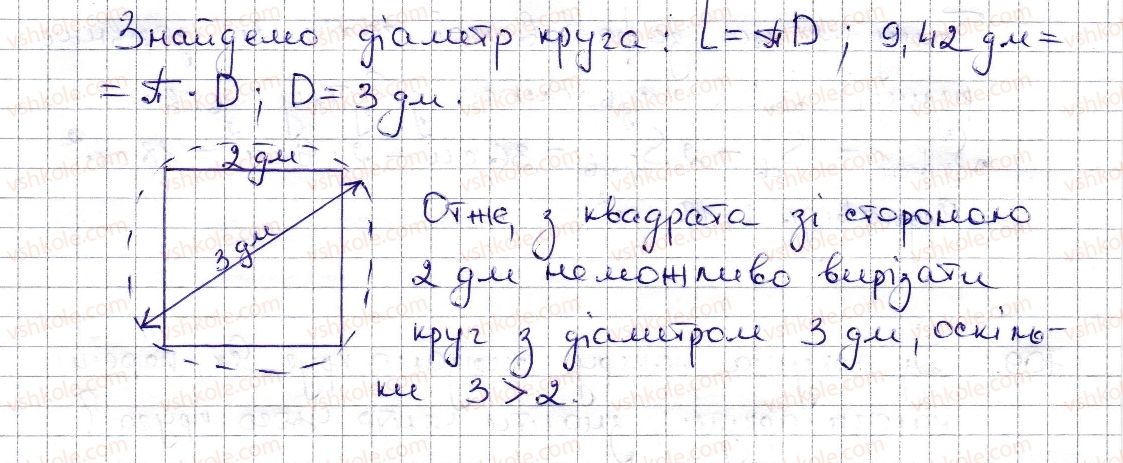 Знайдемо діаметр круга: L = πD; 9,42 дм =
= π · D; D = 3 дм.
2 дм
3 дм
Отже, з квадрата зі стороною
2 дм неможливо вирізати
круг з діаметром 3 дм, оскіль-
ки 3 > 2.